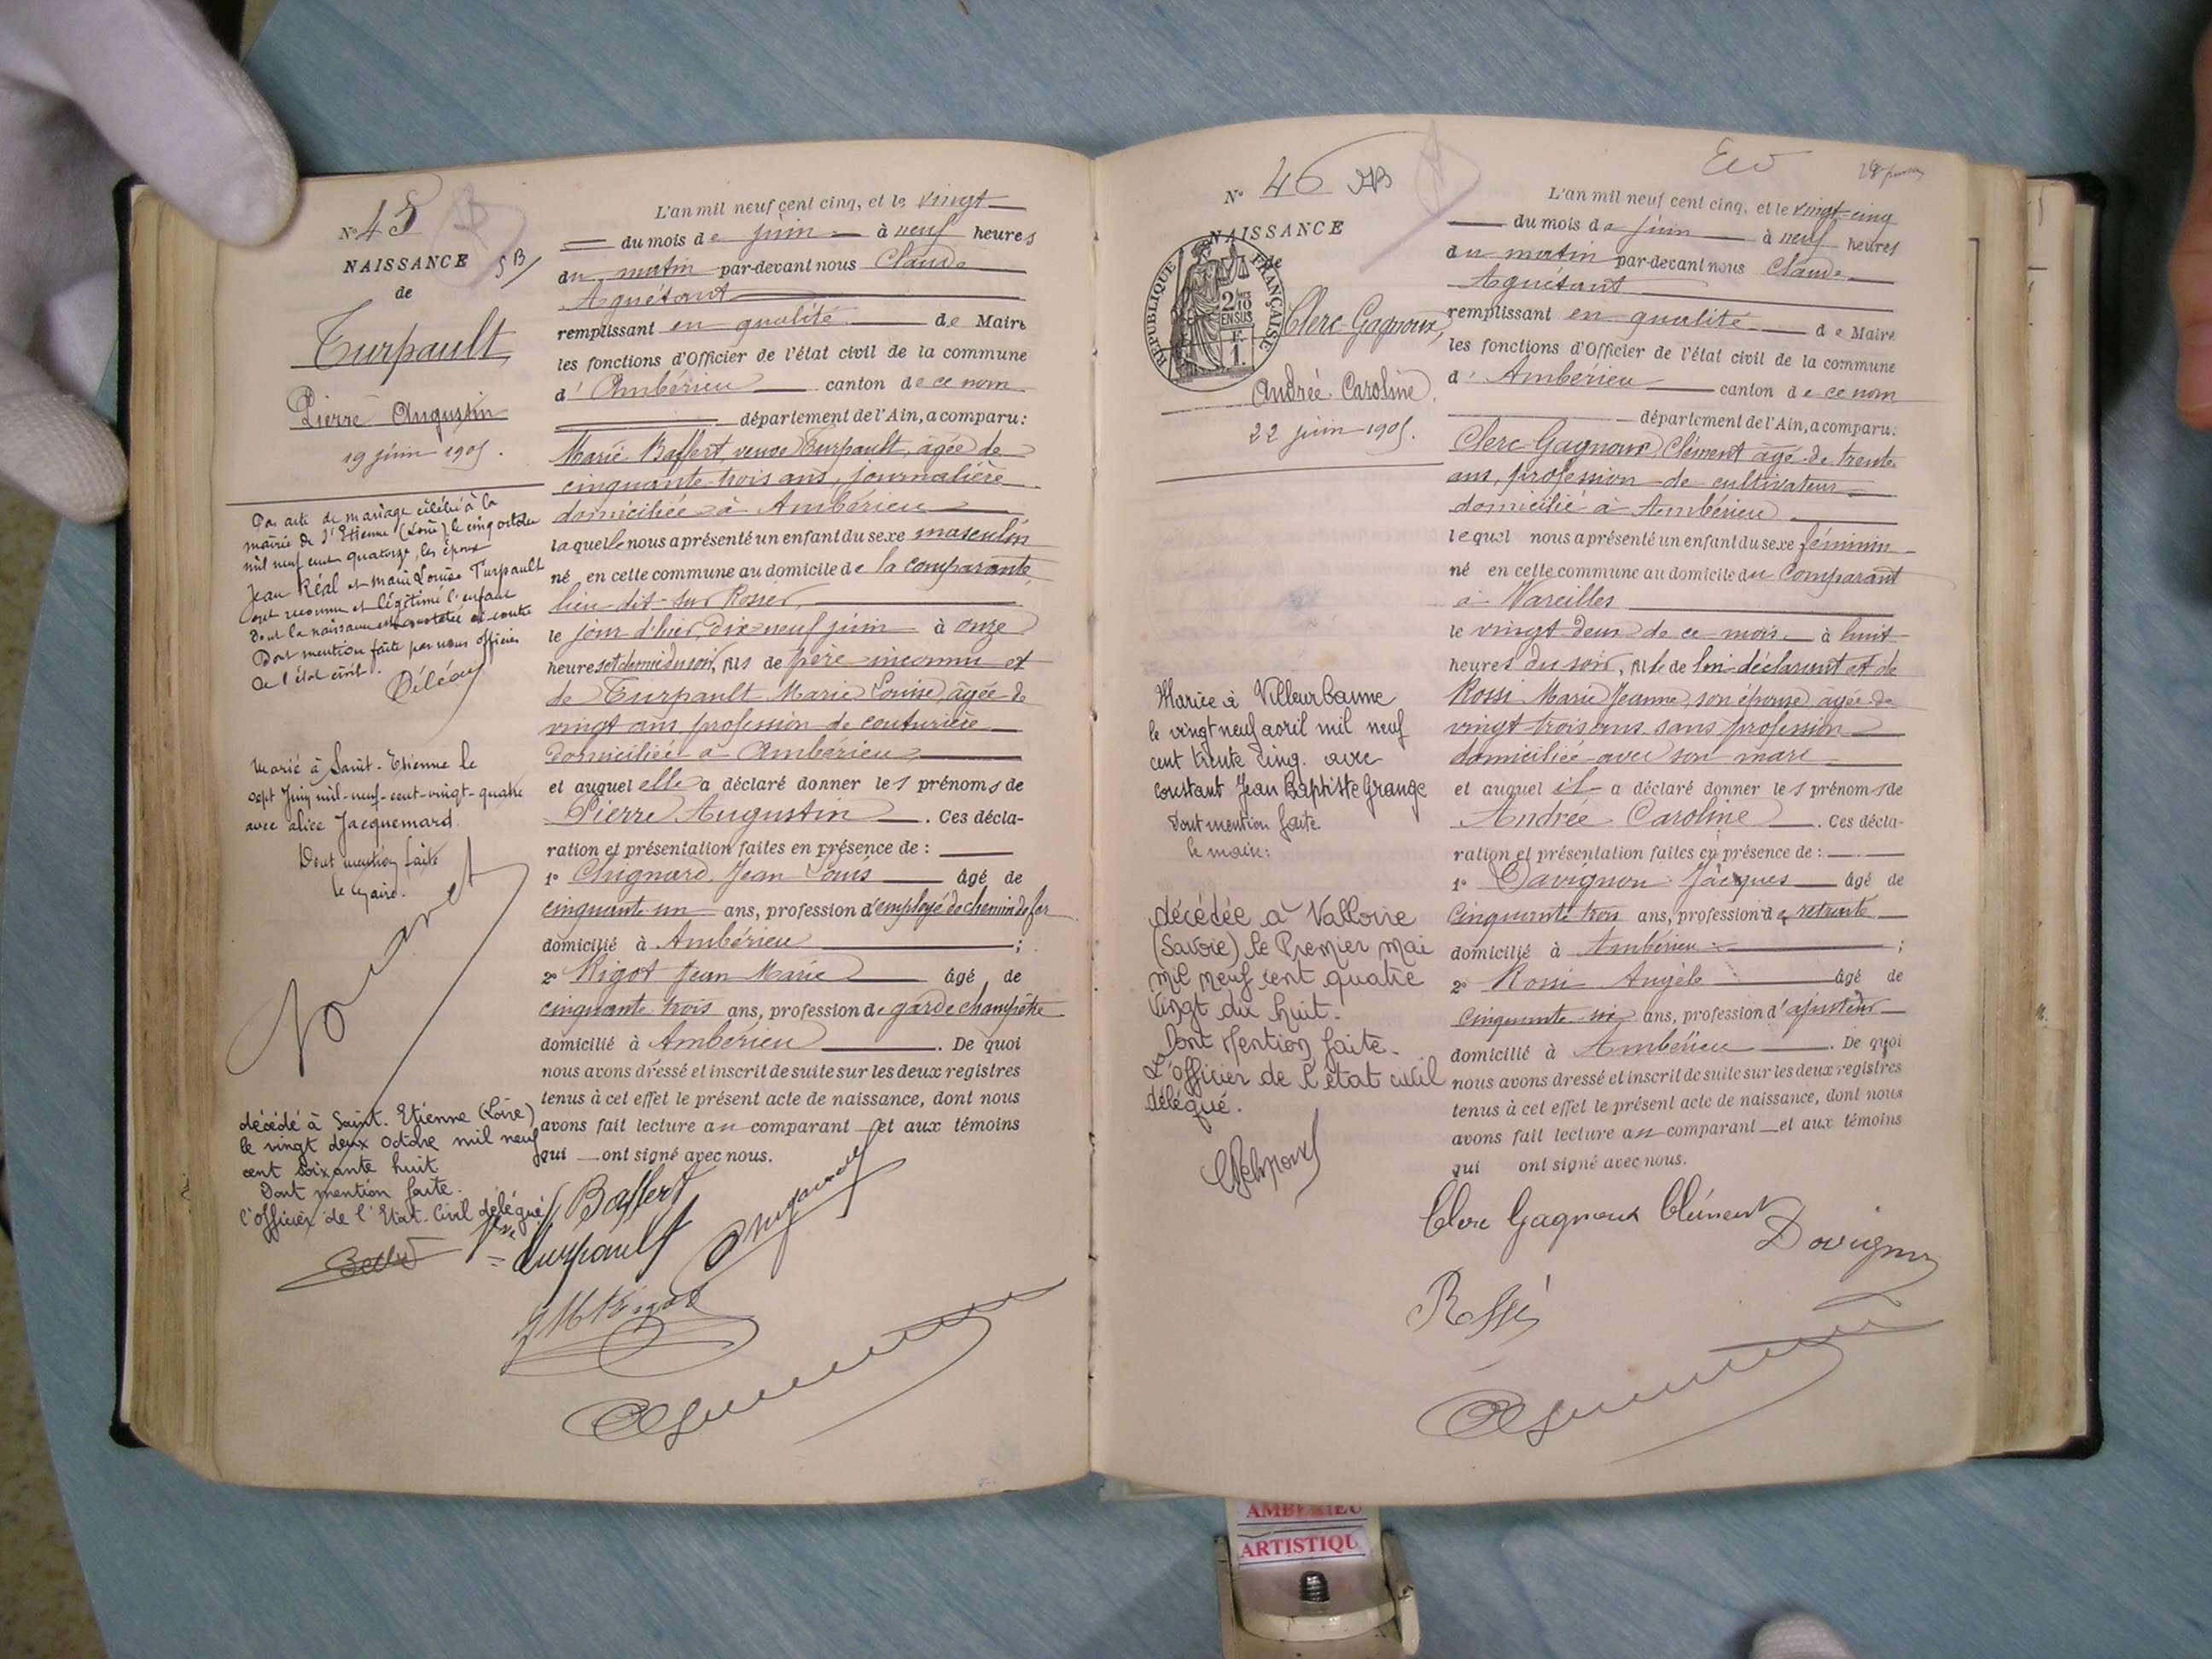 N° 45
NAISSANCE
de
Turpault
Pierre Augustin
19 juin 1905.
Par acte de mariage célébré à la
mairie de St Etienne (Loire) le cinq octobre
mil neuf cent quatorze, les époux
Jean Réal et Marie Louise Turpault
ont reconnu et légitimé l'enfant
dont la naissance est constatée ci-contre
Dont mention faite par nous officier
de l'état civil.
Marié à Saint-Etienne le
sept Juin mil-neuf-cent-vingt-quatre
avec alice Jacquemard.
Dont mention faite
le Maire.
décédé à Saint-Etienne (Loire)
le vingt deux Octobre mil neuf
cent soixante huit
Dont mention faite.
l'Officier de l'Etat-Civil délégué
L'an mil neuf cent cinq, et le vingt
du mois de juin à neuf heures
du matin par-devant nous Claude
Aguétant
remplissant en qualité de Maire
les fonctions d'Officier de l'état civil de la commune
d'Ambérieu canton de ce nom
département de l'Ain, a comparu:
Marie Baffert, veuve Turpault, âgée de
cinquante-trois ans, journalière
domiciliée à Ambérieu
laquelle nous a présenté un enfant du sexe masculin
né en cette commune au domicile de la comparante
lieu dit
le jour d'hier, Dix-neuf juin à onze
heures et demie du soir, fils de père inconnu et
de Turpault Marie Louise, âgée de
vingt ans, profession de couturière
domiciliée à Ambérieu
et auquel elle a déclaré donner les prénoms de
Pierre Augustin. Ces décla-
ration et présentation faites en présence de :
1° Chignard, Jean Louis âgé de
cinquante un ans, profession d'employé de chemin de fer
domicilié à Ambérieu ;
2° Rigot Jean Marie âgé de
cinquante trois ans, profession de garde champêtre
domicilié à Ambérieu. De quoi
nous avons dressé et inscrit de suite sur les deux registres
tenus à cet effet le présent acte de naissance, dont nous
avons fait lecture au comparant et aux témoins
qui ont signé avec nous.
Baffert
Vve Turpault
N° 46
NAISSANCE
de
RÉPUBLIQUE FRANÇAISE
2/10 EN SUS
F. 1.
Clerc-Gagnoux,
Andrée Caroline
22 juin 1905.
Mariée à Villeurbanne
le vingt neuf avril mil neuf
cent trente cinq avec
Constant Jean Baptiste Grange
Dont mention faite
le maire:
décédée à Valloire
(Savoie) le Premier mai
mil neuf cent quatre
vingt dix huit.
Dont Mention faite.
L'Officier de l'état civil
délégué.
L'an mil neuf cent cinq, et le vingt-cinq
du mois de juin à neuf heures
du matin par-devant nous Claude
Aguétant
remplissant en qualité de Maire
les fonctions d'Officier de l'état civil de la commune
d'Ambérieu canton de ce nom
département de l'Ain, a comparu:
Clerc-Gagnoux, Clément âgé de trente
ans, profession de cultivateur
domicilié à Ambérieu
lequel nous a présenté un enfant du sexe féminin
né en cette commune au domicile du Comparant
à Vareilles
le vingt-deux de ce mois à huit
heures du soir, fille de lui déclarant et de
Rossi Marie Jeanne, son épouse, âgée de
vingt-trois ans, sans profession
domiciliée avec son mari
et auquel il a déclaré donner les prénoms de
Andrée Caroline. Ces décla-
ration et présentation faites en présence de :
1° Davignon Jacques âgé de
cinquante-trois ans, profession de retraité
domicilié à Ambérieu ;
2° Rossi Angélo âgé de
cinquante-six ans, profession d'ajusteur
domicilié à Ambérieu. De quoi
nous avons dressé et inscrit de suite sur les deux registres
tenus à cet effet le présent acte de naissance, dont nous
avons fait lecture au comparant et aux témoins
qui ont signé avec nous.
Clerc Gagnoux Clément
Davignon
Rossi
AMBERIEU
ARTISTIQU